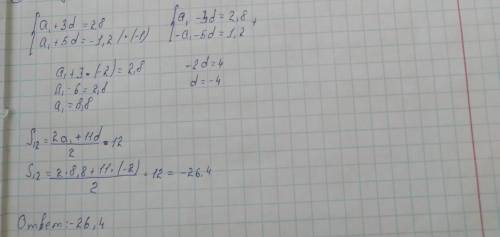 {a₁ + 3d = 28
a₁ + 5d = -1,2 / · (-1)
{a₁ - 3d = 2,8
-a₁ - 5d = 1,2 +
a₁ + 3 · (-2) = 2,8
a₁ - 6 = 2,8
a₁ = 8,8
-2d = 4
d = -4
S₁₂ = (2a₁ + 11d)/2 · 12
S₁₂ = (2 · 8,8 + 11 · (-2))/2 · 12 = -26.4
Ответ: -26,4